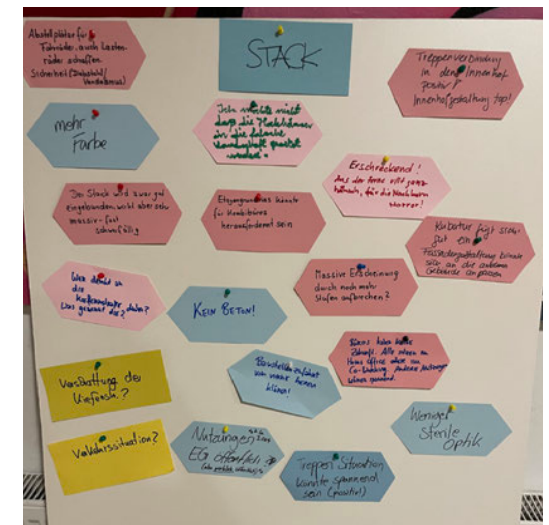 Abstellplätze für
Fahrräder, auch Lasten-
räder schaffen
Sicherheit (Diebstahl/
Vandalismus)
STACK
Treppenverbindung
in den Innenhof
positiv!
Innenhofgestaltung top!
mehr
Farbe
Ich möchte nicht
dass die Hochhäuser
in die
gesetzt
werden.
Erschreckend!
Aus der Ferne
für die Nachbarn
Horror!
Der Stack wird zwar gut
eingebunden, wirkt aber sehr
massiv - fast
schwerfällig
könnte
für Kombibüros
herausfordernd sein
Kubatur fügt sich
gut ein
Fassadengestaltung könnte
sich an die anderen
Gebäude anpassen
Was denkt
die
dahin?
Was die?
KEIN BETON!
Massive Erscheinung
durch noch mehr
Stufen aufbrechen?
Büros haben keine
Zukunft. Alle sitzen im
Home Office oder im
Co-Working. Andere Nutzungen
wären
Verschattung der
Kiefernstr.?
Baustellenzufahrt
von
Weniger
sterile
Optik
Verkehrssituation?
Nutzungen
EG öffentlich?
Treppen Situation
könnte spannend
sein (positiv!)